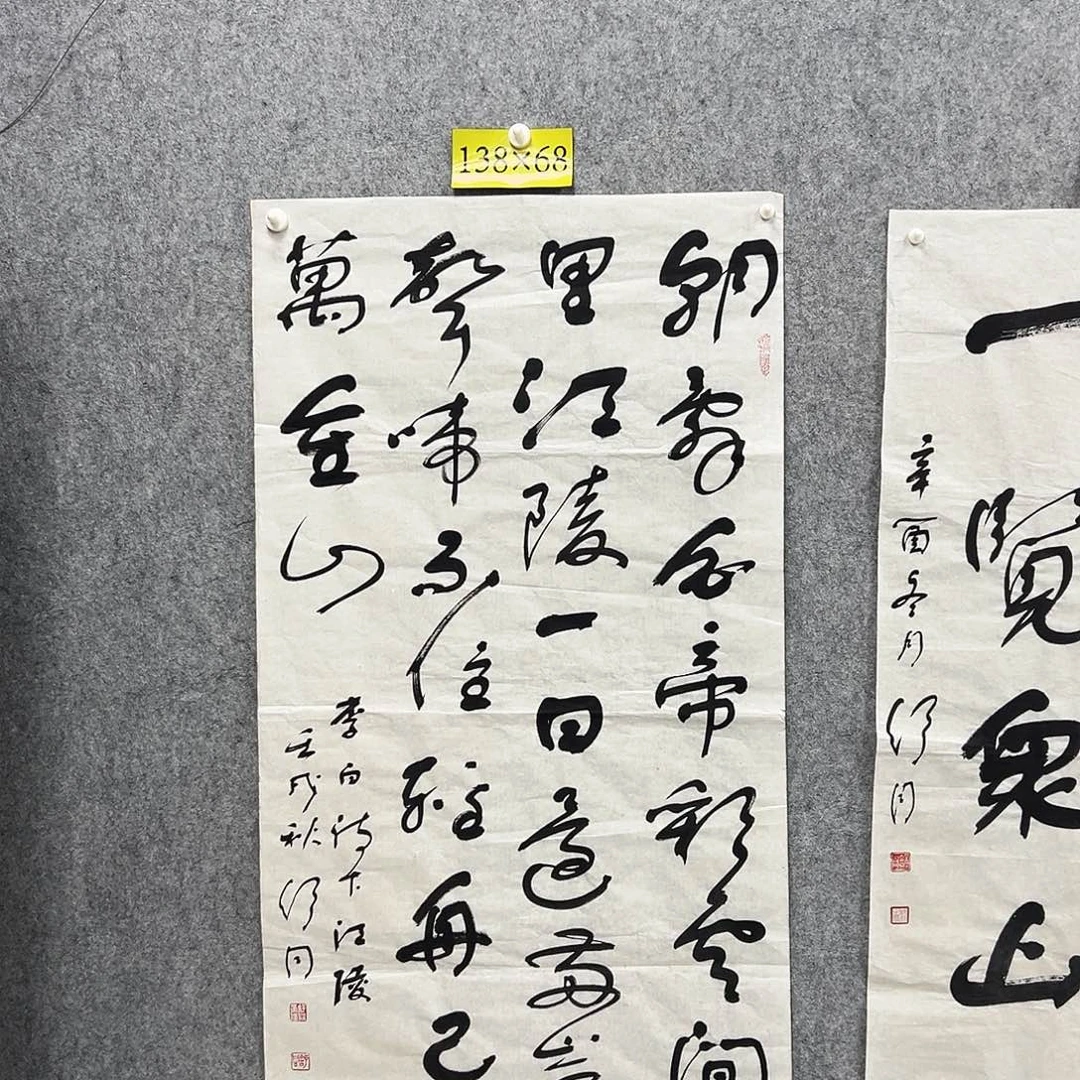 138×68
朝辭白帝彩雲間
里江陵一日還兩岸
聲啼不住輕舟已
萬重山
李白詩下江陵
壬戌秋 舒同
一覽眾山
辛酉冬月 舒同